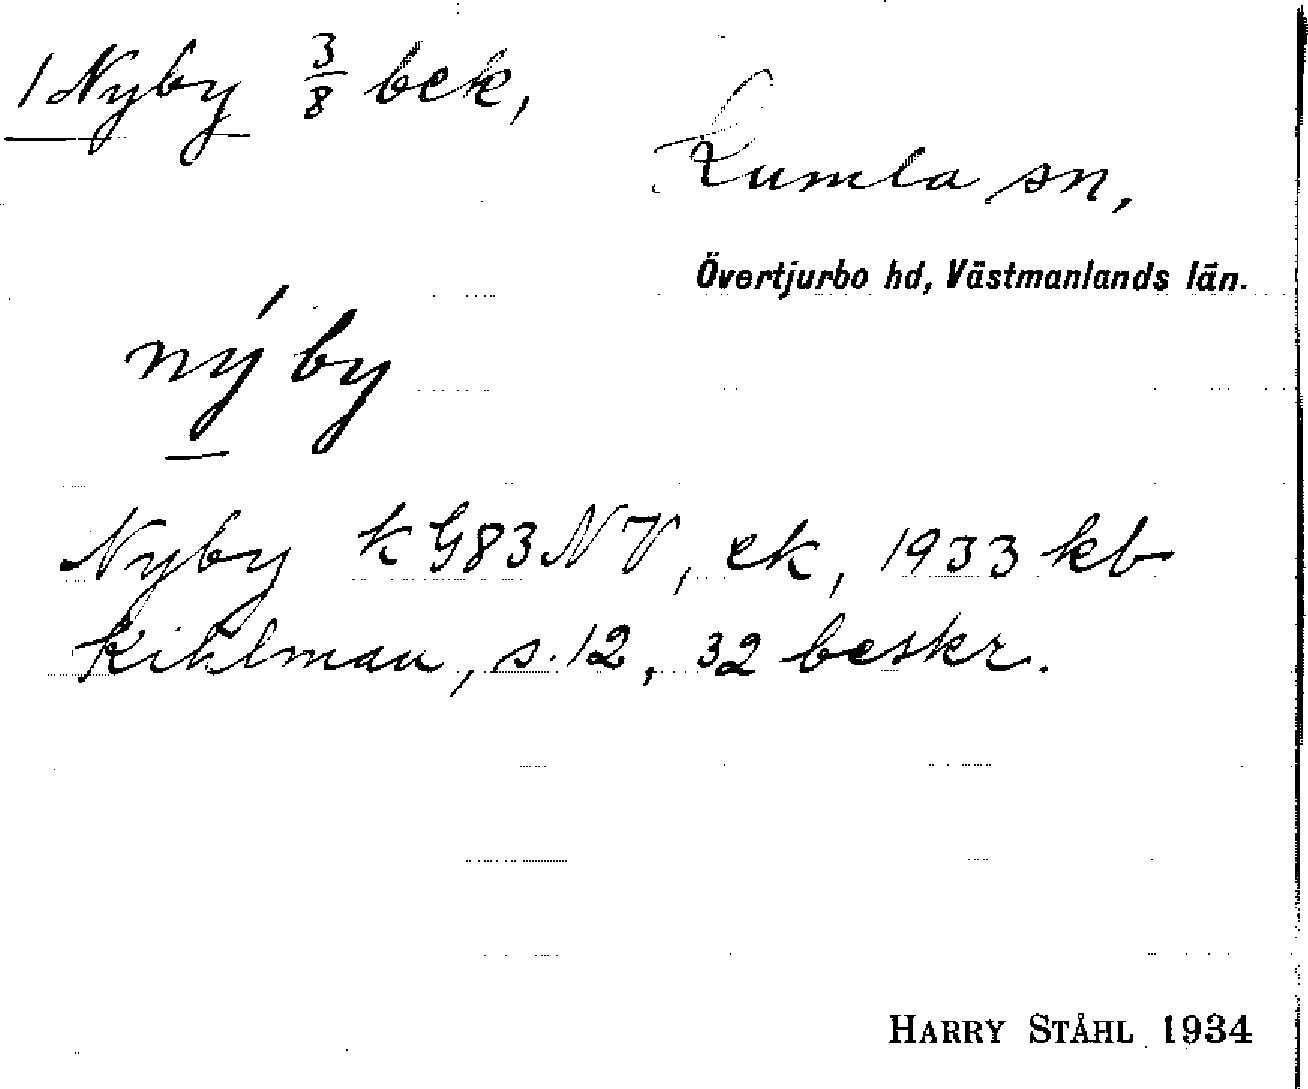 1 Nyby 3/8 bek,
Kumla sn,
Övertjurbo hd, Västmanlands län.
ný by
Nyby k G83 NV, ek, 1933 kb
Kihlman, s. 12, 32 beskr.
HARRY STÅHL 1934